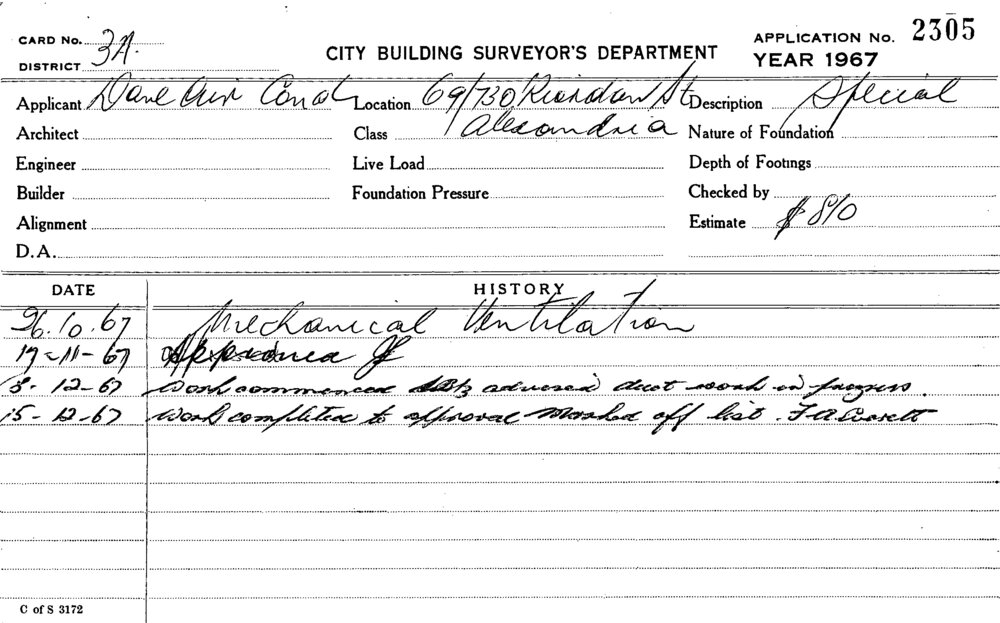 CARD No. 3A CITY BUILDING SURVEYOR'S DEPARTMENT APPLICATION No. 2305
DISTRICT YEAR 1967
Applicant Dane Air Cond Location 69/730 Riordan St Description Special
Architect Class Alexandria Nature of Foundation
Engineer Live Load Depth of Footings
Builder Foundation Pressure Checked by
Alignment Estimate $ 810
D.A.
DATE HISTORY
26.10.67 Mechanical Ventilation
17-11-67 Approved
12-67 work commenced duct work in
15-12-67 work completed to approval marked off list. F A Everett
C of S 3172